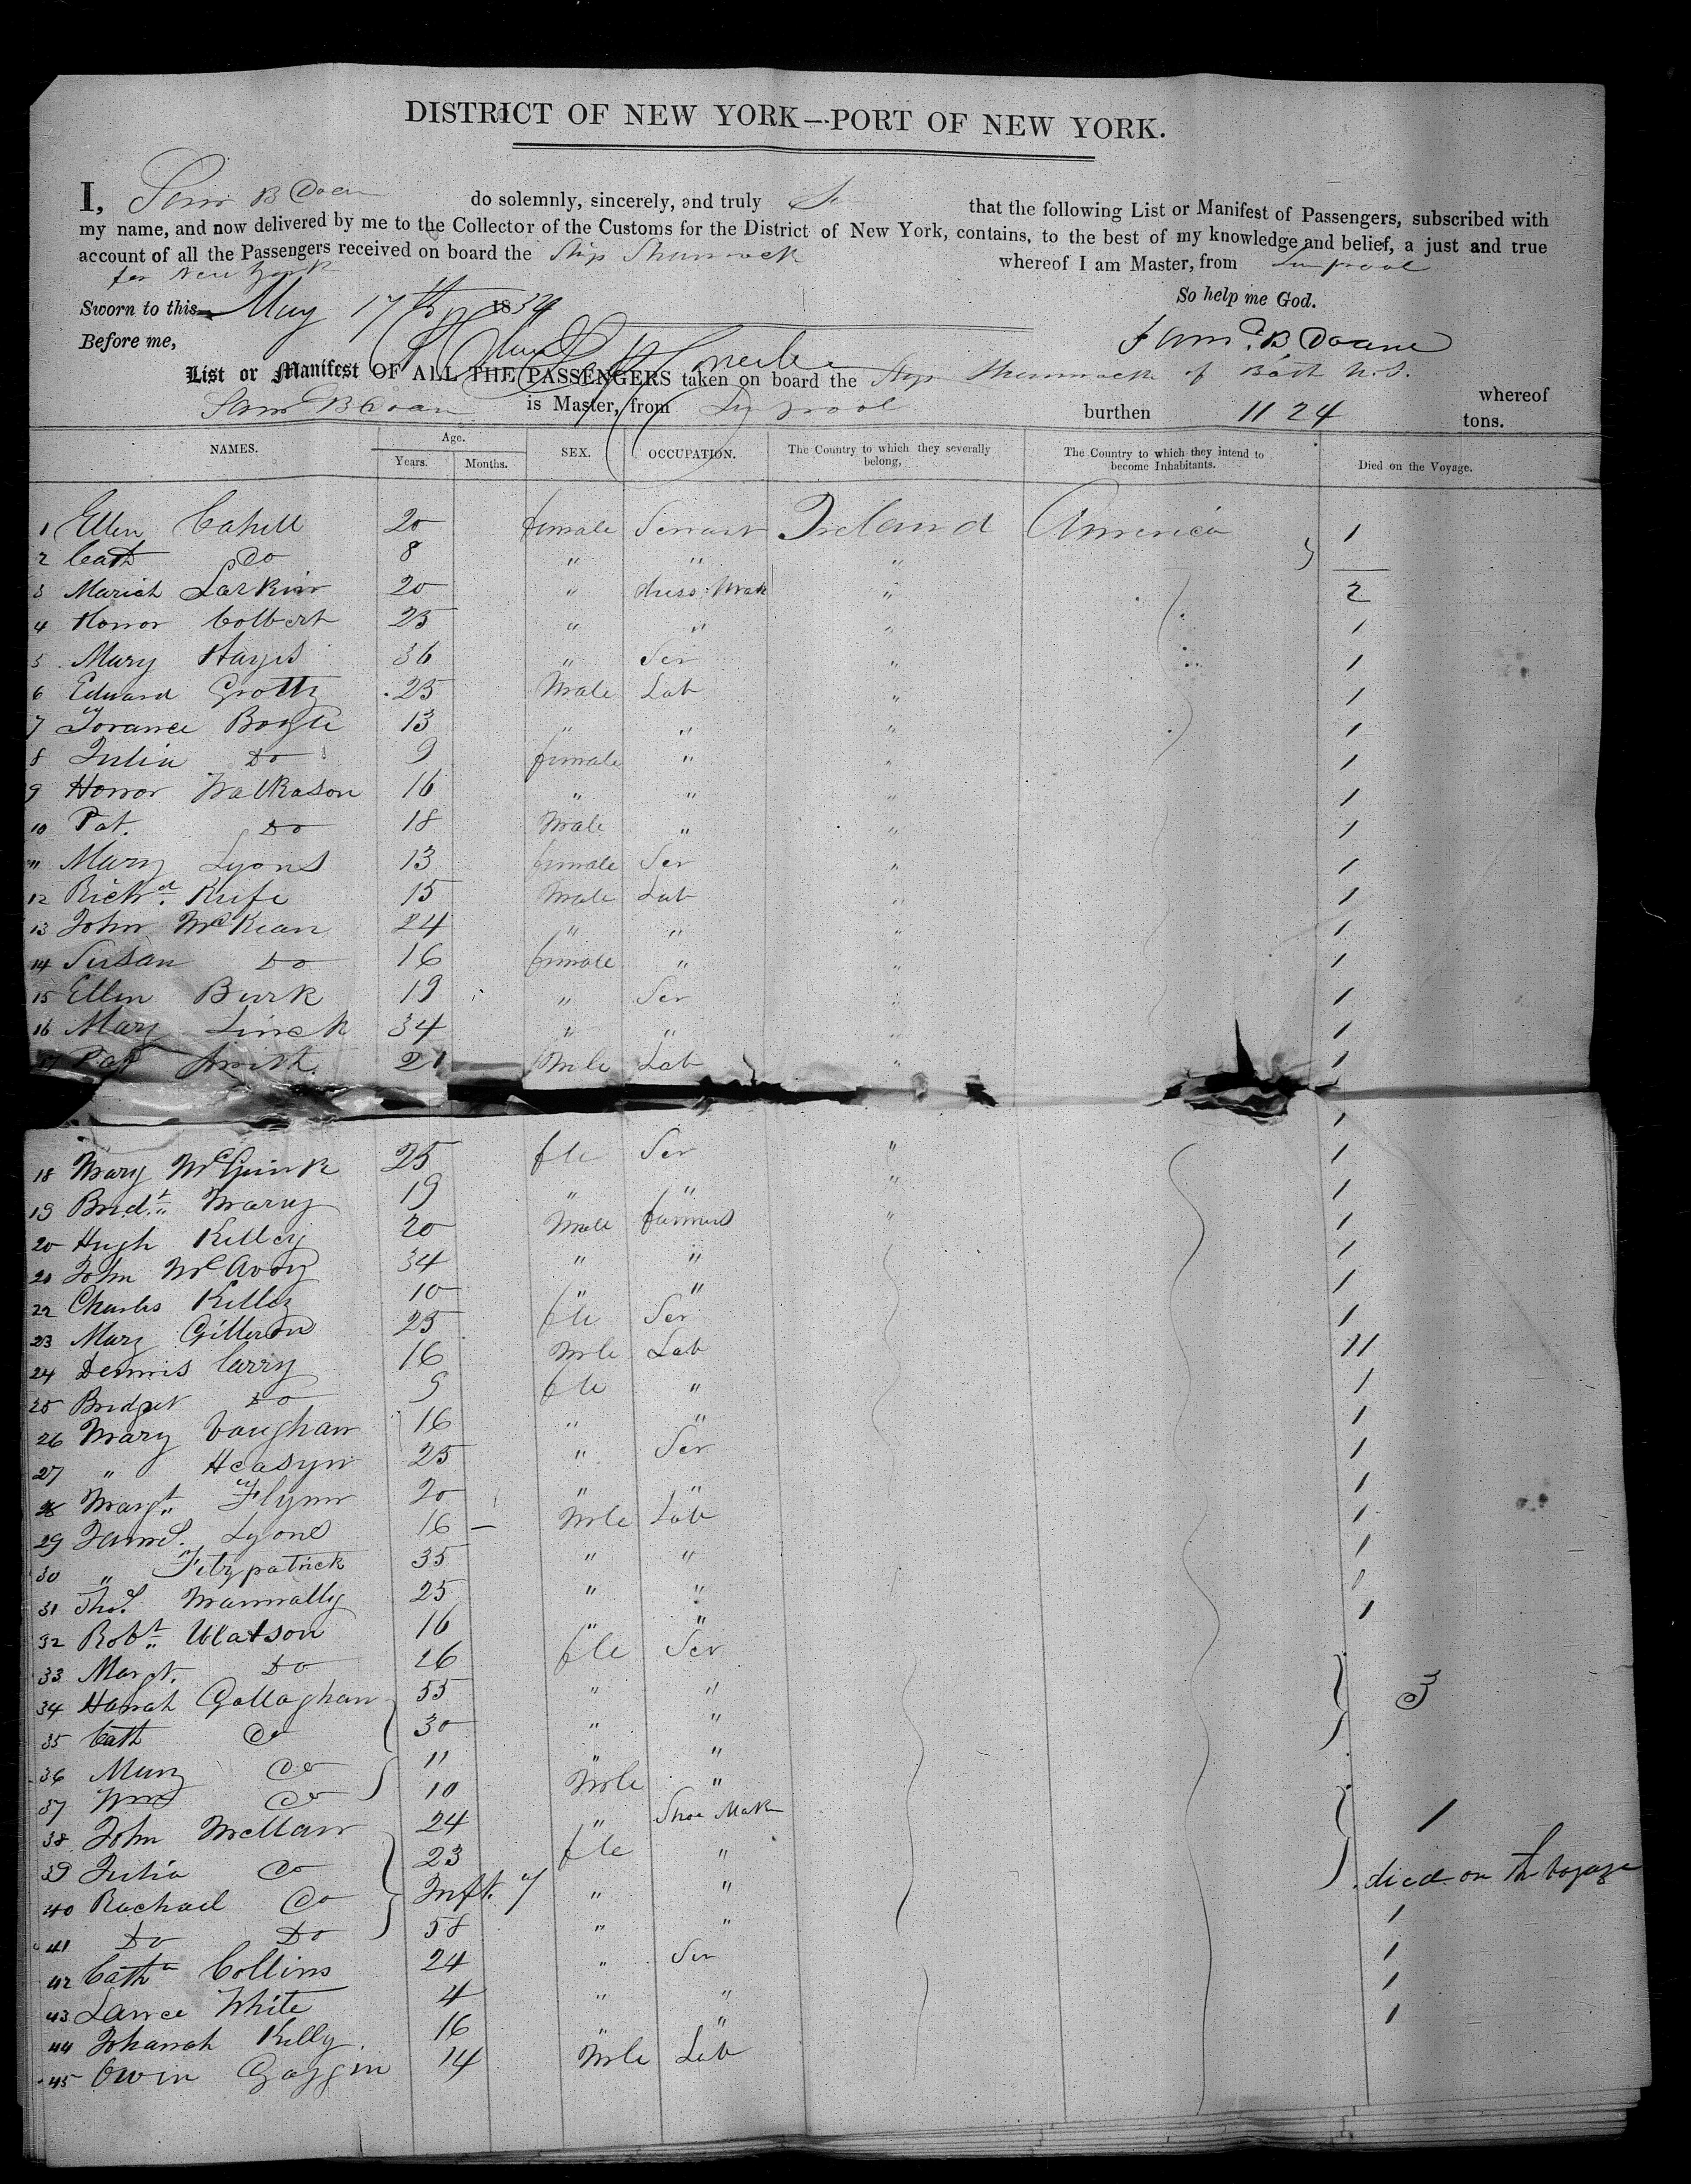 DISTRICT OF NEW YORK—PORT OF NEW YORK.
I, Sam B Doan do solemnly, sincerely, and truly that the following List or Manifest of Passengers, subscribed with
my name, and now delivered by me to the Collector of the Customs for the District of New York, contains, to the best of my knowledge and belief, a just and true
account of all the Passengers received on board the Ship Shamrock whereof I am Master, from Liverpool
for New York
So help me God.
Sworn to this May 17th 18
Before me,
Sam. B Doane
List or Manifest OF ALL THE PASSENGERS taken on board the Ship Shamrock of Bath whereof
Sam B Doan is Master, from Liverpool burthen 1124 tons.
NAMES. Age. Years. Months. SEX. OCCUPATION. The Country to which they severally belong, The Country to which they intend to become Inhabitants. Died on the Voyage.
1 Ellen Cahill 20 female Servant Ireland America 1
2 Cath Do 8 " " "
3 Mariah Larkin 20 " dress Mak " 2
4 Honor Colbert 25 " " " 1
5 Mary Hayes 36 " Ser " 1
6 Edward Grotty 25 Male Lab " 1
7 13 " " " 1
8 Julia Do 9 female " " 1
9 Honor 16 " " " 1
10 Pat. Do 18 Male " " 1
11 Mary Lyons 13 female Ser " 1
12 Richd. Kufe 15 Male Lab " 1
13 John McKean 24 " " " 1
14 Susan Do 16 female " " 1
15 Ellen Burk 19 " Ser " 1
16 Mary Linch 34 " " " 1
17 Pat Smith. 21 Mle Lab " 1
1
18 Mary McGuirk 25 fle Ser " 1
19 Bridt. 19 " " " 1
20 Hugh Kelley 20 Male farmers " 1
21 John McAvoy 34 " " 1
22 Charles Kelley 10 " " 1
23 Mary Gilleron 25 fle Ser 1
24 Dennis Carry 16 Mle Lab 11
25 Bridget Do 9 fle " 1
26 Mary Vaughan 16 " " 1
27 " Heasyn 25 " Ser 1
28 Margt. Flynn 20 " " 1
29 Jams. Lyons 16 – Mle Lab 1
30 " Fitzpatrick 35 " " 1
31 Thos. 25 " " 1
32 Robt. Watson 16 " " 1
33 Margt. Do 26 fle Ser
34 Hanah Gallaghan 55 " " 3
35 Cath Do 30 " "
36 Mary Do 11 " "
37 Wm Do 10 Mle "
38 John 24 " Shoe Mak 1
39 Julia Do 23 fle "
40 Rachael Do Inft. " " died on the Voyage
41 Do Do 58 " " 1
42 Catha Collins 24 " Ser 1
43 Lance White 4 " " 1
44 Johanah Killy 16 " " 1
45 Owin Goggin 14 Mle Lab